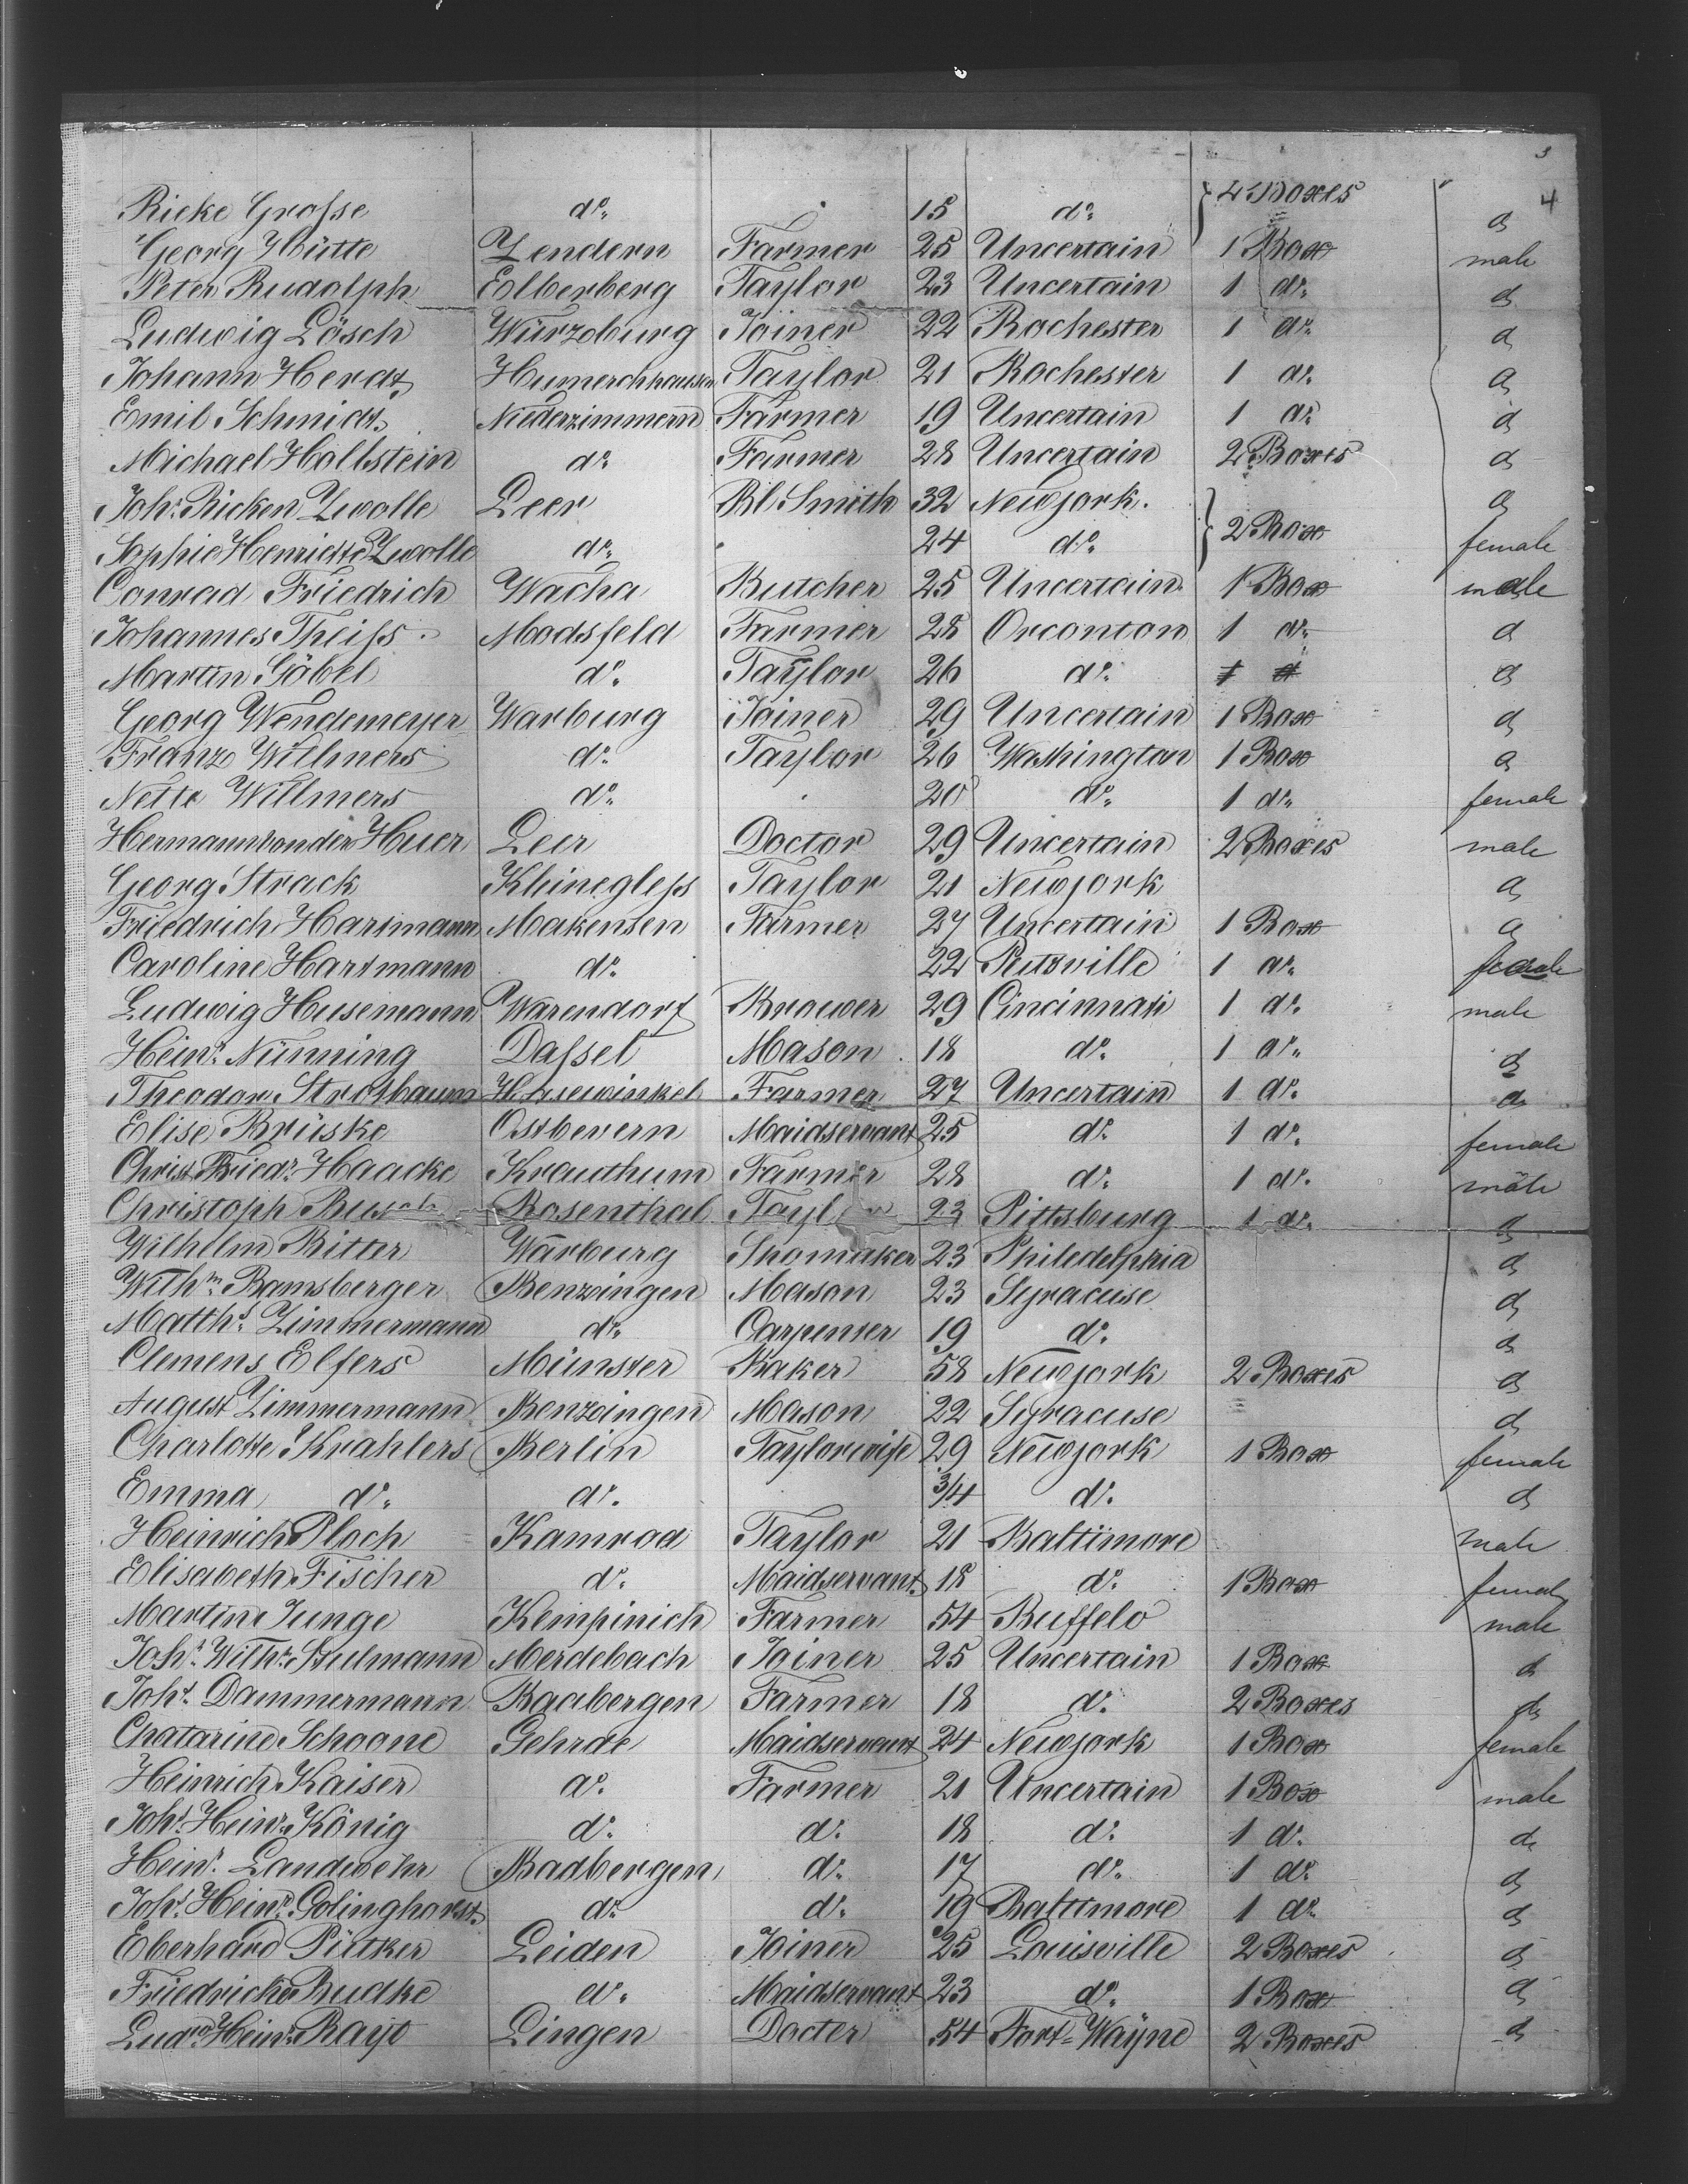 3
4
Rieke Grosse do. 15 do. } 4 Boxes do
Georg Hütte Zendern Farmer 25 Uncertain 1 Box male
Peter Rudolph Elberberg Taylor 23 Uncertain 1 do. do
Ludwig Lösch Würzburg Joiner 22 Rochester 1 do. do
Johann Herdt Humerchhausen Taylor 21 Rochester 1 do. do
Emil Schmidt Niederzimmern Farmer 19 Uncertain 1 do. do
Michael Hollstein do. Farmer 28 Uncertain 2 Boxes do
Joh. Ricken Zwolle Leer Bl. Smith 32 Newjork. do
Sophie Henriette Zwolle do. 24 do. } 2 Box female
Conrad Friedrich Wacha Butcher 25 Uncertain 1 Box male
Johannes Theiss Modsfeld Farmer 28 Orconton 1 do. do
Martin Göbel do. Taylor 26 do. 1 d do
Georg Wendemeyer Warburg Joiner 29 Uncertain 1 Box do
Franz Willmers do. Taylor 26 Washington 1 Box do
Nette Willmers do. 20 do. 1 do. female
Hermann von der Huer Leer Doctor 29 Uncertain 2 Boxes male
Georg Strack Khinegless Taylor 21 Newjork do
Friedrich Hartmann Makensen Farmer 27 Uncertain 1 Box do
Caroline Hartmann do. 22 1 do. female
Ludwig Husemann Warendorf Brouwer 29 Cincinnati 1 do. male
Heinr. Nünning Dassel Mason 18 do. 1 do. do
Theodor Strotbaum Hasewinkel Farmer 27 Uncertain 1 do. do
Elise Brüske Ostbevern Maidservant 25 do. 1 do. female
Christ. Friedr. Haacke Krauthum Farmer 28 do. 1 do. male
Christoph Rosenthal Taylor 23 Pittsburg 1 do. do
Wilhelm Ritter Warburg Shomaker 23 Philedelphia do
Wilhm. Bamsberger Benzingen Mason 23 Syracuse do
Matths. Zimmermann do. Carpenter 19 do. do
Clemens Elfers Münster Baker 58 Newjork 2 Boxes do
August Zimmermann Benzingen Mason 22 Syracuse do
Charlotte Krahlers Berlin Taylorwife 29 Newjork 1 Box female
Emma do. do. 3/4 do. do
Heinrich Ploch Kamrod Taylor 21 Baltimore male
Elisabeth Fischer do. Maidservant 18 do. 1 Box female
Martin Junge Kempinich Farmer 54 Buffelo male
Joht. Wilh. Stulmann Merdebach Joiner 25 Uncertain 1 Box do
Joht. Dammermann Badbergen Farmer 18 do. 2 Boxes do
Chatarine Schoone Gehrde Maidservant 24 Newjork 1 Box female
Heinrich Kaiser do. Farmer 21 Uncertain 1 Box male
Joht. Heinr. König do. do. 18 do. 1 do. do
Heinr. Landwehr Badbergen do. 17 do. 1 do. do
Joht. Heinr. Golinghorst do. do. 19 Baltimore 1 do. do
Eberhard Pütker Leiden Joiner 25 Louisville 2 Boxes do
Friedricke Budke do. Maidservant 23 do. 1 Box do
Ludw. Heinr. Lingen Docter 54 Fort-Wayne 2 Boxes do